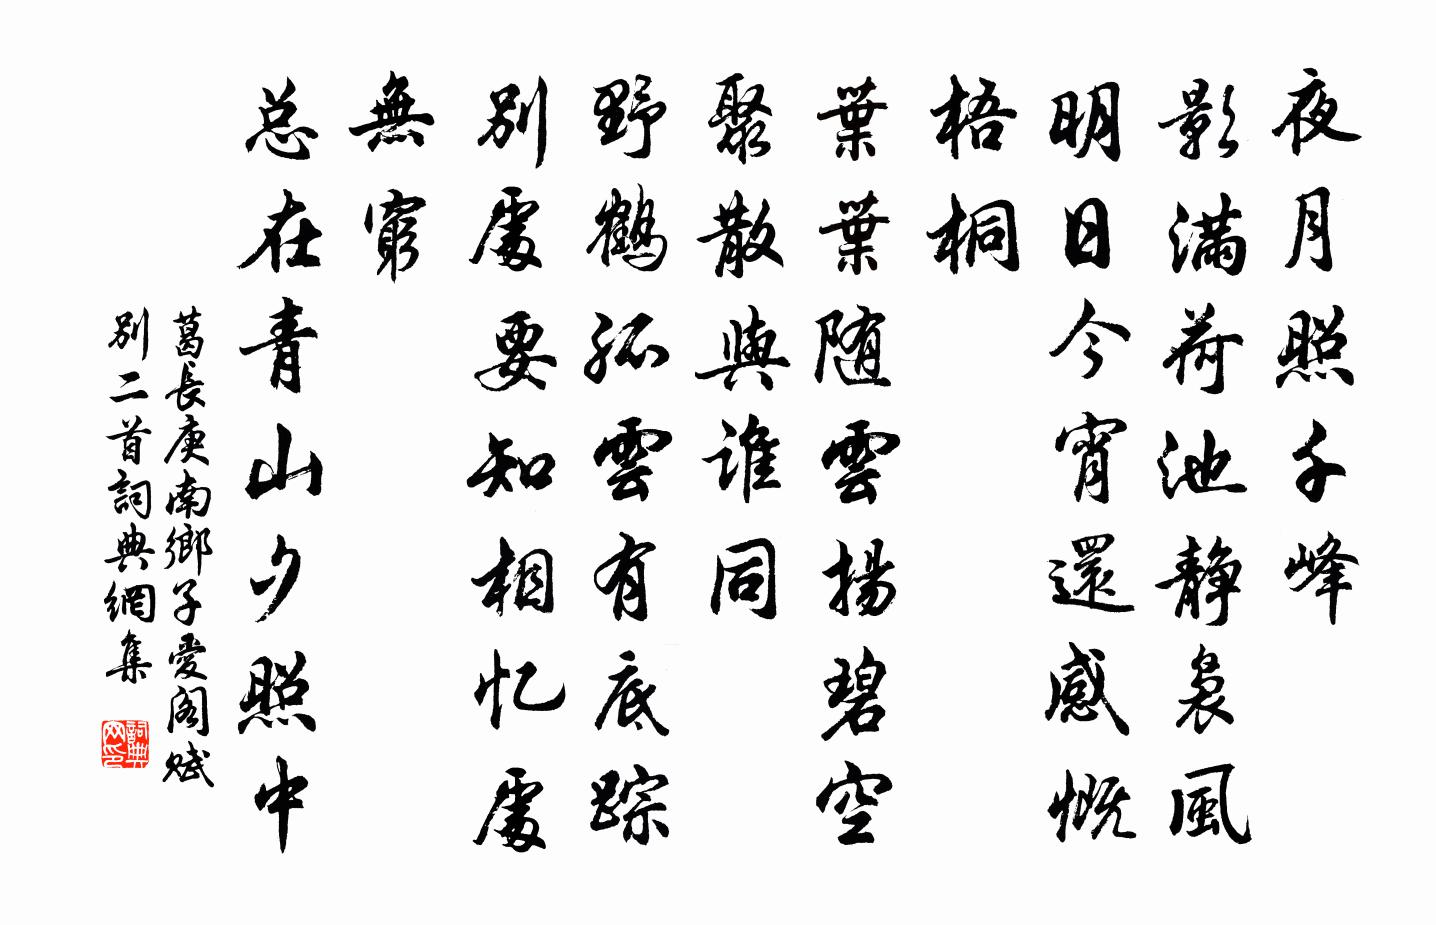 夜月照千峰
影满荷池静袅風
明日今宵還感慨
梧桐
葉葉随雲揚碧空
聚散與谁同
野鶴孤雲有底踪
别處要知相忆處
無窮
总在青山夕照中
葛長庚南鄉子愛阁赋
别二首詞典網集
詞典网印